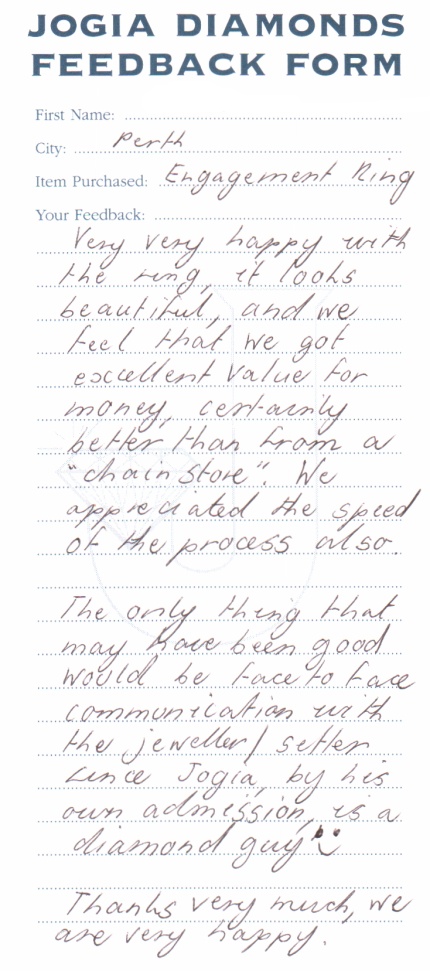 JOGIA DIAMONDS
FEEDBACK FORM
First Name:
City: Perth
Item Purchased: Engagement Ring
Your Feedback:
Very very happy with
the ring, it looks
beautiful, and we
feel that we got
excellent value for
money, certainly
better than from a
"chain store". We
appreciated the speed
of the process also.
The only thing that
may have been good
would be face to face
communication with
the jeweller/setter
since Jogia, by his
own admission, is a
diamond guy!
Thanks very much, we
are very happy.